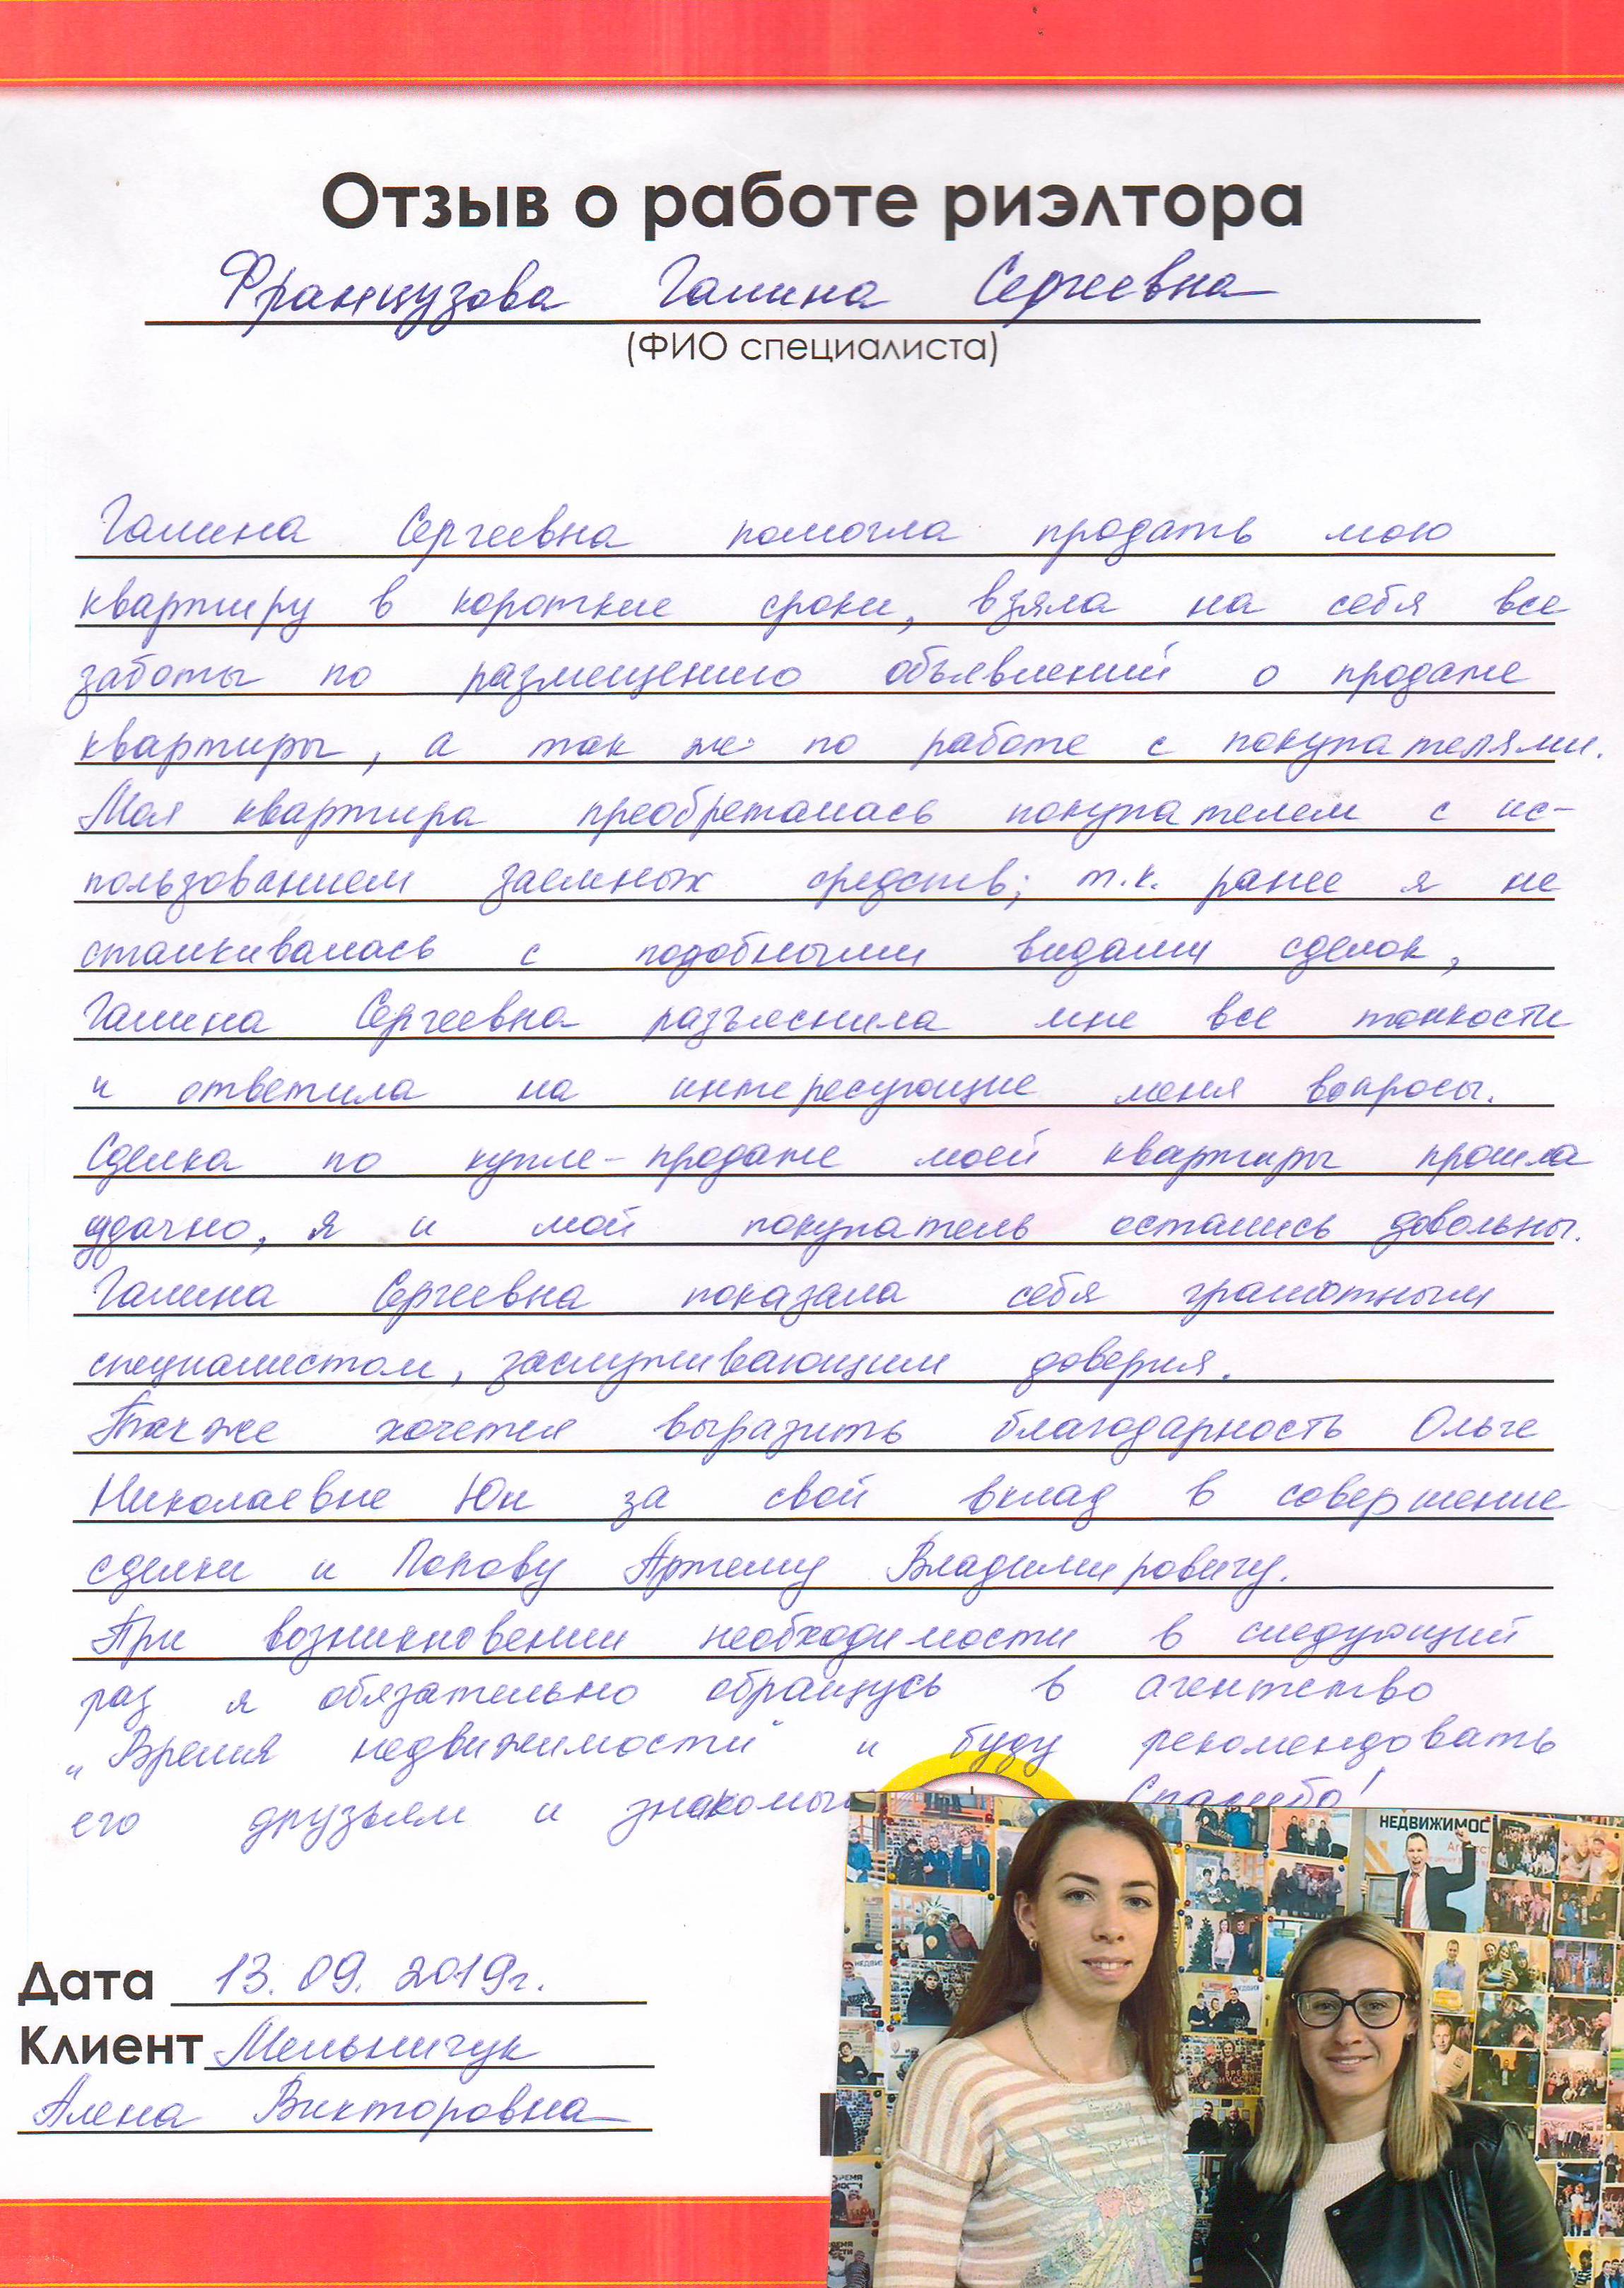 Отзыв о работе риэлтора
Французова Галина Сергеевна
(ФИО специалиста)
Галина Сергеевна помогла продать мою
квартиру в короткие сроки, взяла на себя все
заботы по размещению объявлений о продаже
квартиры, а так же по работе с покупателями.
Моя квартира преобреталась покупателем с ис-
пользованием заемных средств; т.к. ранее я не
сталкивалась с подобными видами сделок,
Галина Сергеевна разъяснила мне все тонкости
и ответила на интересующие меня вопросы.
Сделка по купле-продаже моей квартиры прошла
удачно, я и мой покупатель остались довольны.
Галина Сергеевна показала себя грамотным
специалистом, заслуживающим доверия.
Также хочется выразить благодарность Ольге
Николаевне Юн за свой вклад в совершение
сделки и Попову Артему Владимировичу.
При возникновении необходимости в следующий
раз я обязательно обращусь в агентство
"Время недвижимости" и буду рекомендовать
его друзьям и знакомым Спасибо!
НЕДВИЖИМОС
Дата 13.09.2019г.
Клиент Мельничук
Алена Викторовна